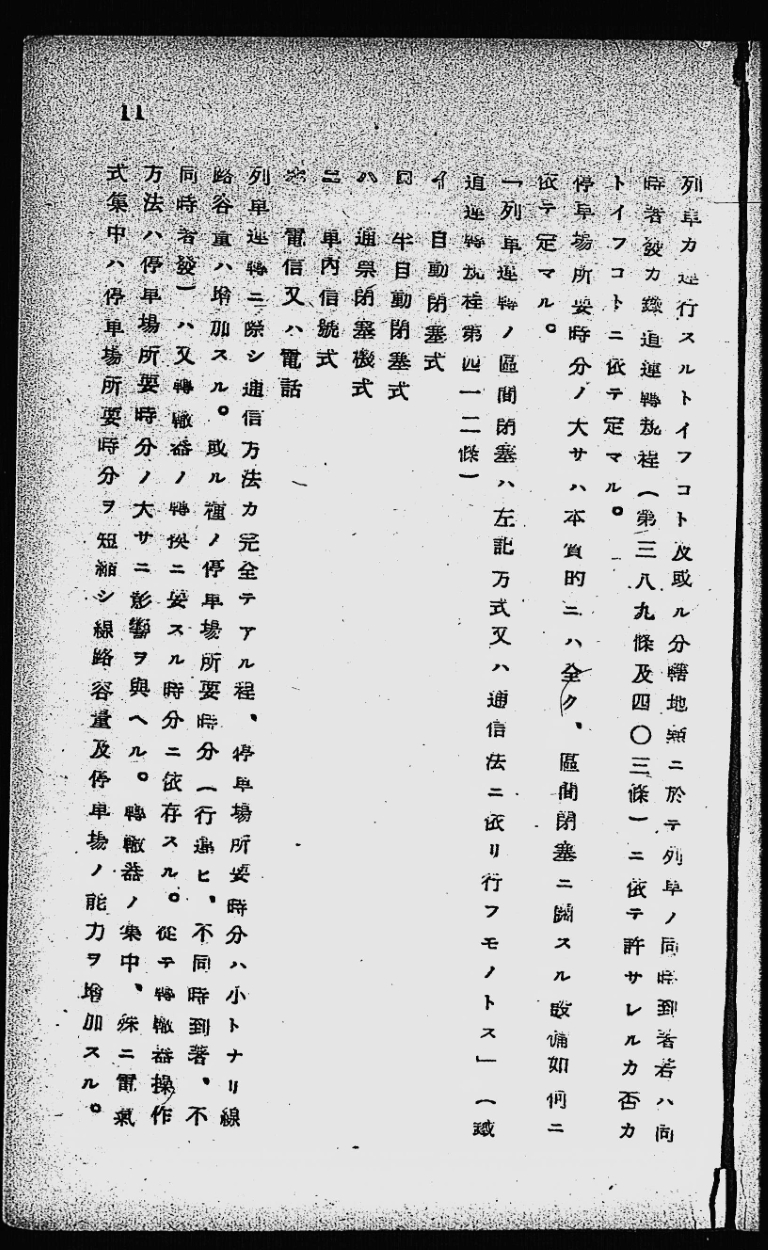 11
列車カ運行スルトイフコト及或ル分轄地點ニ於テ列車ノ同時到著若ハ同
時著發カ鐵道運轉規程(第三八九條及四〇三條)ニ依テ許サレルカ否カ
トイフコトニ依テ定マル。
停車場所要時分ノ大サハ本質的ニハ全ク、區間閉塞ニ關スル設備如何ニ
依テ定マル。
「列車運轉ノ區間閉塞ハ左記方式又ハ通信法ニ依リ行フモノトス」(鐵
道運轉規程第四一二條)
イ 自動閉塞式
ロ 半自動閉塞式
ハ 通票閉塞機式
ニ 車內信號式
ホ 電信又ハ電話
列車運轉ニ際シ通信方法カ完全テアル程、停車場所要時分ハ小トナリ線
路容量ハ增加スル。或ル種ノ停車場所要時分(行違ヒ、不同時到著、不
同時著發)ハ又轉轍器ノ轉換ニ要スル時分ニ依存スル。從テ轉轍器操作
方法ハ停車場所要時分ノ大サニ影響ヲ與ヘル。轉轍器ノ集中、殊ニ電氣
式集中ハ停車場所要時分ヲ短縮シ線路容量及停車場ノ能力ヲ增加スル。